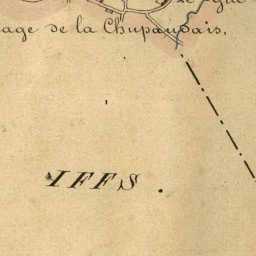 age de la Chupaudais.
IFFS.